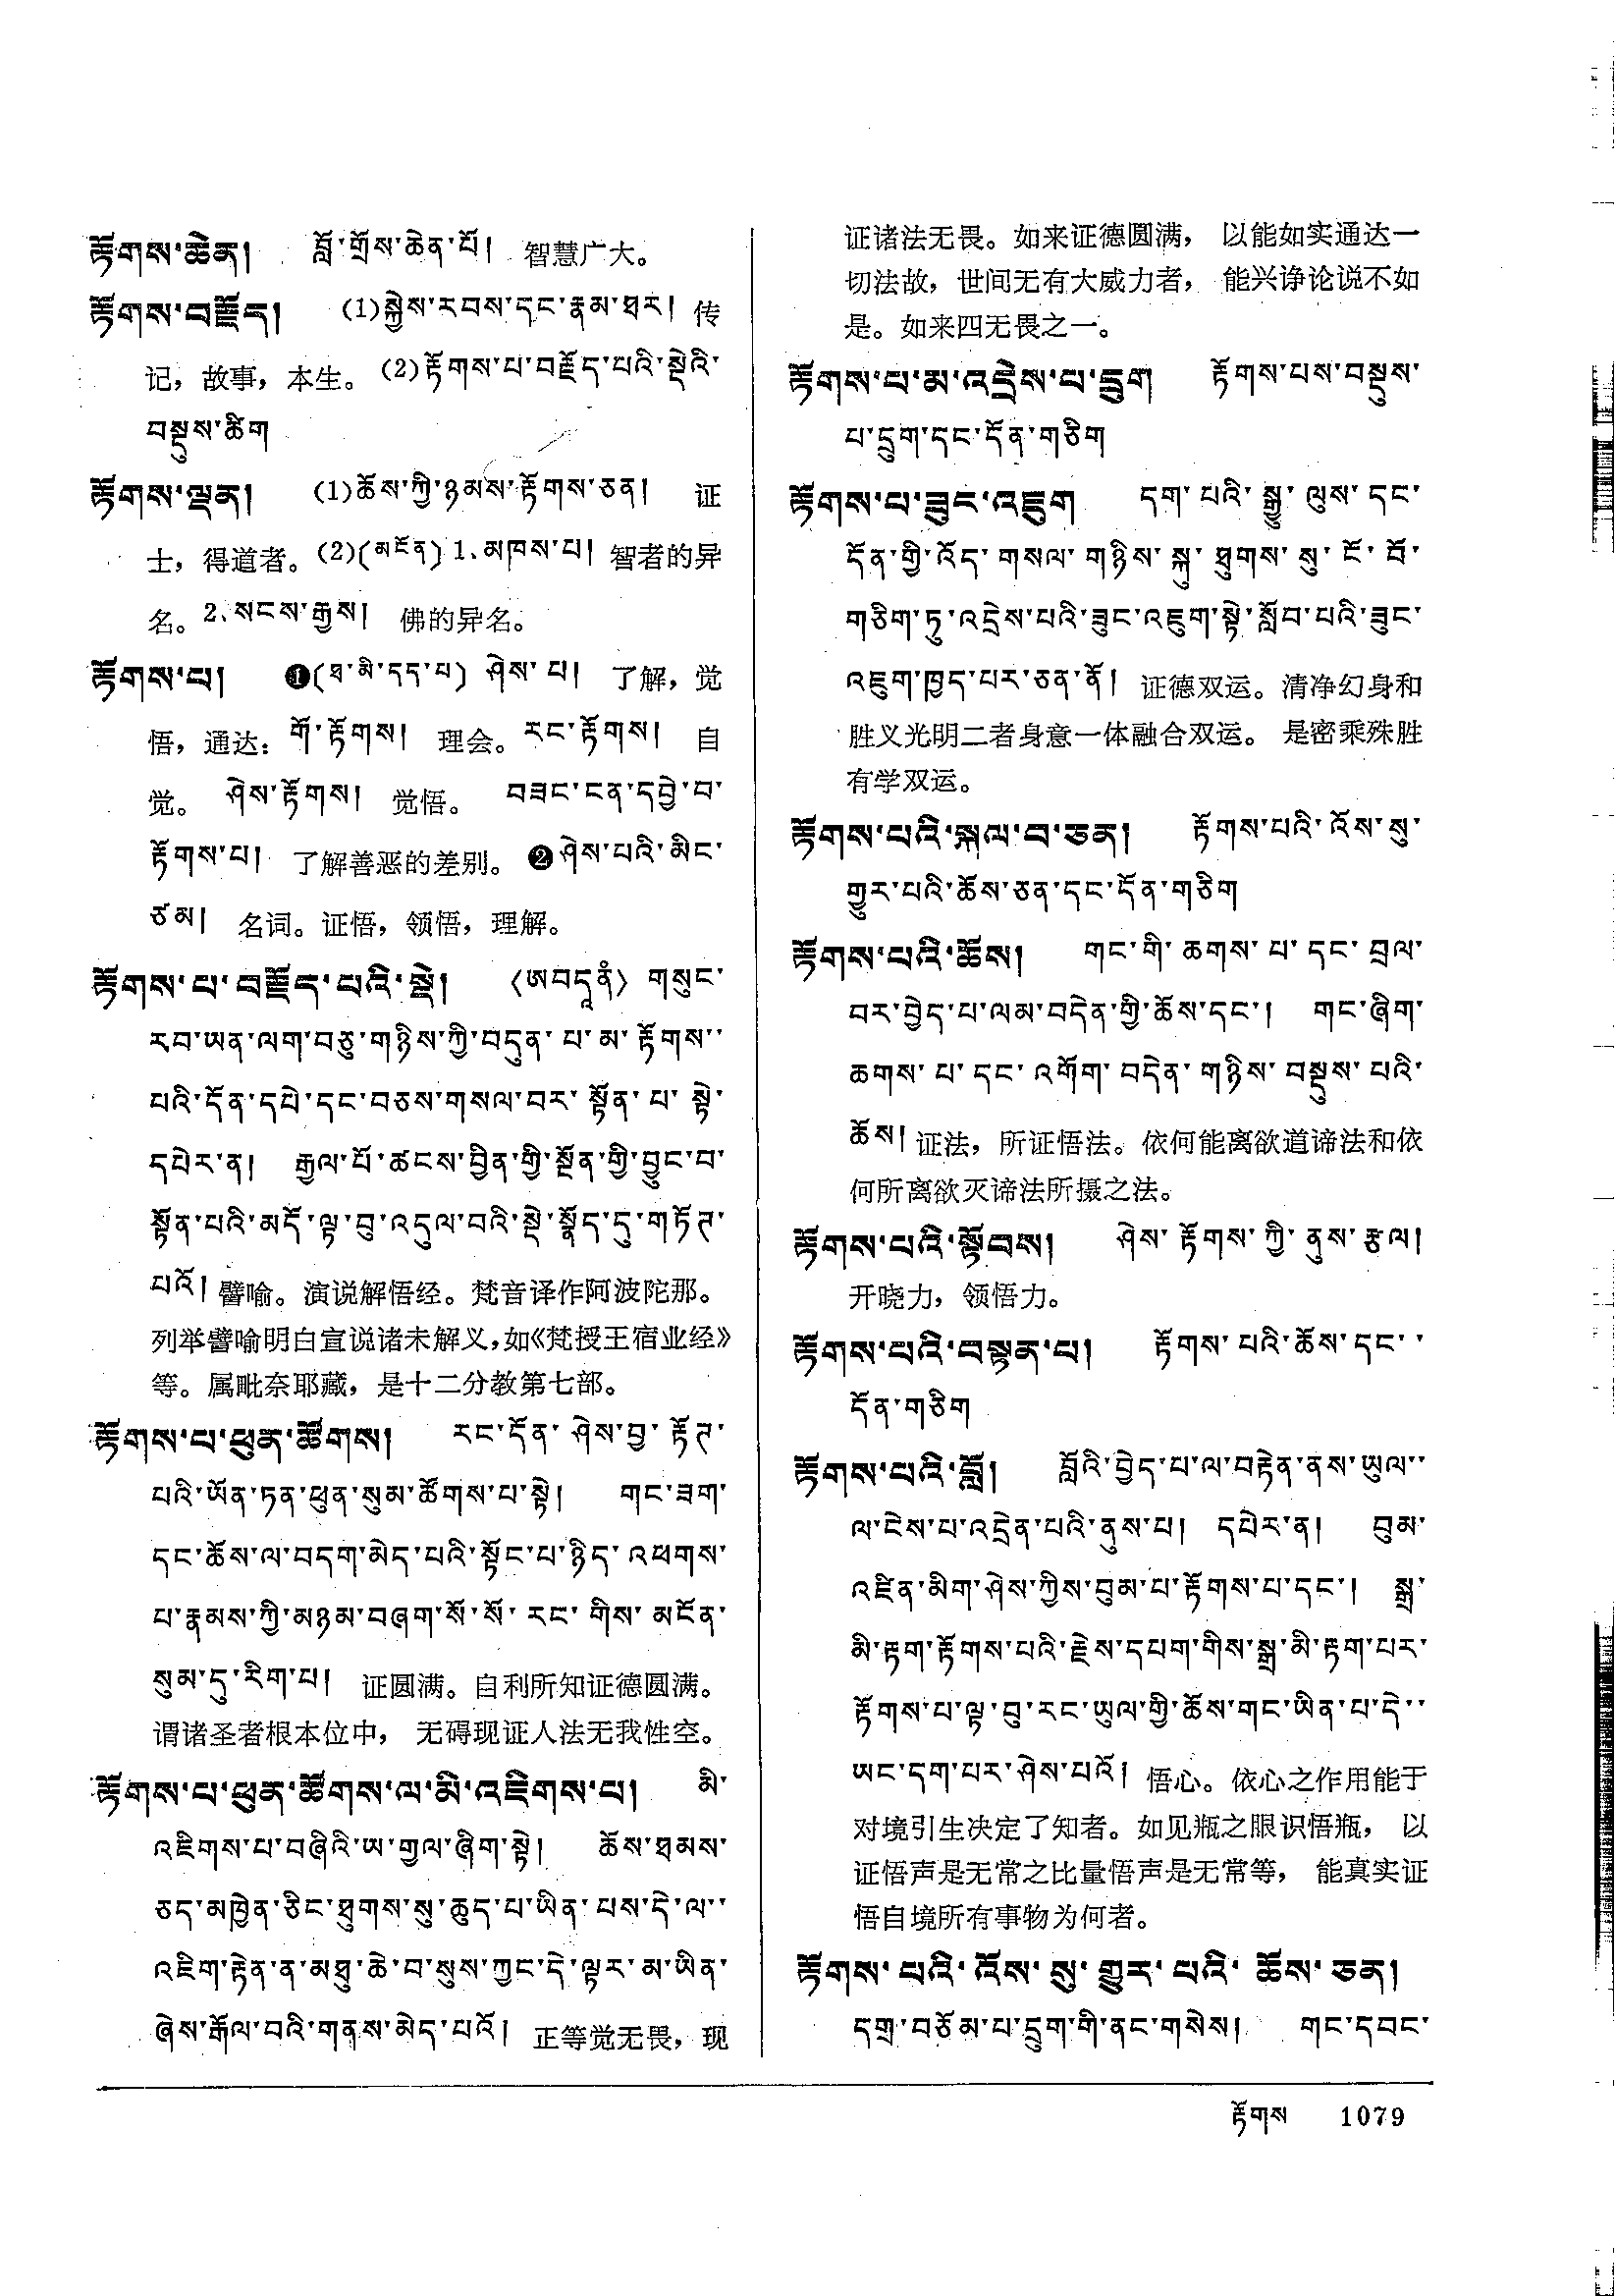 རྟོགས་ཆེན། བློ་གྲོས་ཆེན་པོ། 智慧广大。
རྟོགས་བརྗོད། (1)སྐྱེས་རབས་དང་རྣམ་ཐར། 传
记，故事，本生。(2)རྟོགས་པ་བརྗོད་པའི་སྡེའི་
བསྡུས་ཚིག
རྟོགས་ལྡན། (1)ཆོས་ཀྱི་ཉམས་རྟོགས་ཅན། 证
士，得道者。(2)(མངོན) 1.མཁས་པ། 智者的异
名。2.སངས་རྒྱས། 佛的异名。
རྟོགས་པ། ❶(ཐ་མི་དད་པ) ཤེས་པ། 了解，觉
悟，通达：གོ་རྟོགས། 理会。རང་རྟོགས། 自
觉。 ཤེས་རྟོགས། 觉悟。 བཟང་ངན་དབྱེ་བ་
རྟོགས་པ། 了解善恶的差别。❷ཤེས་པའི་མིང་
ཙམ། 名词。证悟，领悟，理解。
རྟོགས་པ་བརྗོད་པའི་སྡེ། 〈ཨབདཱནཾ〉གསུང་
རབ་ཡན་ལག་བཅུ་གཉིས་ཀྱི་བདུན་པ་མ་རྟོགས་་
པའི་དོན་དཔེ་དང་བཅས་གསལ་བར་སྟོན་པ་སྟེ་
དཔེར་ན། རྒྱལ་པོ་ཚངས་བྱིན་གྱི་སྔོན་གྱི་བྱུང་བ་
སྟོན་པའི་མདོ་ལྟ་བུ་འདུལ་བའི་སྡེ་སྣོད་དུ་གཏོཊ་
པའོ། 譬喻。演说解悟经。梵音译作阿波陀那。
列举譬喻明白宣说诸未解义，如《梵授王宿业经》
等。属毗奈耶藏，是十二分教第七部。
རྟོགས་པ་ཕུན་ཚོགས། རང་དོན་ཤེས་བྱ་རྟོཊ་
པའི་ཡོན་ཏན་ཕུན་སུམ་ཚོགས་པ་སྟེ། གང་ཟག་
དང་ཆོས་ལ་བདག་མེད་པའི་སྟོང་པ་ཉིད་འཕགས་
པ་རྣམས་ཀྱི་མཉམ་བཞག་སོ་སོ་རང་གིས་མངོན་
སུམ་དུ་རིག་པ། 证圆满。自利所知证德圆满。
谓诸圣者根本位中， 无碍现证人法无我性空。
རྟོགས་པ་ཕུན་ཚོགས་ལ་མི་འཇིགས་པ། མི་
འཇིགས་པ་བཞིའི་ཨ་གྱལ་ཞིག་སྟེ། ཆོས་ཐམས་
ཅད་མཁྱེན་ཅིང་ཐུགས་སུ་ཆུད་པ་ཡིན་པས་དེ་ལ་་
འཇིག་རྟེན་ན་མཐུ་ཆེ་བ་སུས་ཀྱང་དེ་ལྟར་མ་ཡིན་
ཞེས་རྒོལ་བའི་གནས་མེད་པའོ། 正等觉无畏，现
证诸法无畏。如来证德圆满， 以能如实通达一
切法故，世间无有大威力者， 能兴诤论说不如
是。如来四无畏之一。
རྟོགས་པ་མ་འདྲེས་པ་དྲུག རྟོགས་པས་བསྡུས་
པ་དྲུག་དང་དོན་གཅིག
རྟོགས་པ་ཟུང་འཇུག དག་པའི་སྒྱུ་ལུས་དང་
དོན་གྱི་འོད་གསལ་གཉིས་སྐུ་ཐུགས་སུ་ངོ་བོ་
གཅིག་ཏུ་འདྲེས་པའི་ཟུང་འཇུག་སྟེ་སློབ་པའི་ཟུང་
འཇུག་ཁྱད་པར་ཅན་ནོ། 证德双运。清净幻身和
胜义光明二者身意一体融合双运。 是密乘殊胜
有学双运。
རྟོགས་པའི་སྐལ་བ་ཅན། རྟོགས་པའི་འོས་སུ་
གྱུར་པའི་ཆོས་ཅན་དང་དོན་གཅིག
རྟོགས་པའི་ཆོས། གང་གི་ཆགས་པ་དང་བྲལ་
བར་བྱེད་པ་ལམ་བདེན་གྱི་ཆོས་དང་། གང་ཞིག་
ཆགས་པ་དང་འགོག་བདེན་གཉིས་བསྡུས་པའི་
ཆོས། 证法，所证悟法。依何能离欲道谛法和依
何所离欲灭谛法所摄之法。
རྟོགས་པའི་སྟོབས། ཤེས་རྟོགས་ཀྱི་ནུས་རྩལ།
开晓力，领悟力。
རྟོགས་པའི་བསྟན་པ། རྟོགས་པའི་ཆོས་དང་་
དོན་གཅིག
རྟོགས་པའི་བློ། བློའི་བྱེད་པ་ལ་བརྟེན་ནས་ཡུལ་་
ལ་ངེས་པ་འདྲེན་པའི་ནུས་པ། དཔེར་ན། བུམ་
འཛིན་མིག་ཤེས་ཀྱིས་བུམ་པ་རྟོགས་པ་དང་། སྒྲ་
མི་རྟག་རྟོགས་པའི་རྗེས་དཔག་གིས་སྒྲ་མི་རྟག་པར་
རྟོགས་པ་ལྟ་བུ་རང་ཡུལ་གྱི་ཆོས་གང་ཡིན་པ་དེ་་
ཡང་དག་པར་ཤེས་པའོ། 悟心。依心之作用能于
对境引生决定了知者。如见瓶之眼识悟瓶， 以
证悟声是无常之比量悟声是无常等， 能真实证
悟自境所有事物为何者。
རྟོགས་པའི་འོས་སུ་གྱུར་པའི་ཆོས་ཅན།
དགྲ་བཅོམ་པ་དྲུག་གི་ནང་གསེས། གང་དབང་
རྟོགས 1079